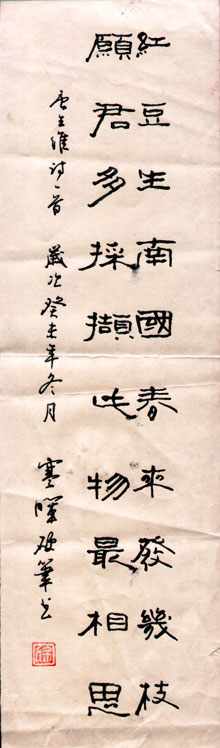 紅豆生南國春來發幾枝
願君多採擷此物最相思
唐王維诗一首 歲次癸未年冬月 硬筆书